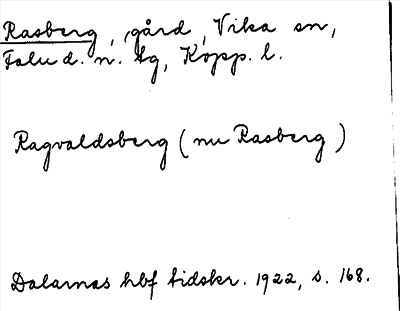 Rasberg, gård, Vika sn,
Falu d. n. tg, Kopp. l.
Ragvaldsberg (nu Rasberg)
Dalarnas hbf tidskr. 1922, s. 168.